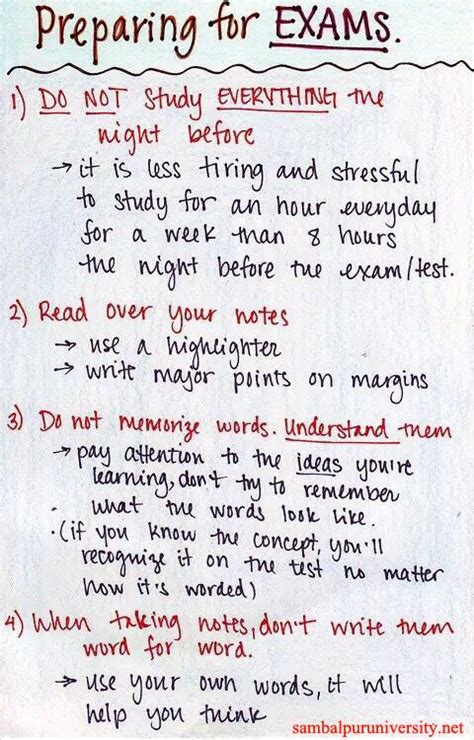 Preparing for EXAMS.
1) DO NOT study EVERYTHING the
night before
→ it is less tiring and stressful
to study for an hour everyday
for a week than 8 hours
the night before the exam/test.
2) Read over your notes
→ use a highlighter
→ write major points on margins
3) Do not memorize words. Understand them
→ pay attention to the ideas you're
learning, don't try to remember
what the words look like.
• (if you know the concept, you'll
recognize it on the test no matter
how it's worded)
4) When taking notes, don't write them
word for word.
→ use your own words, it will
help you think
sambalpuruniversity.net